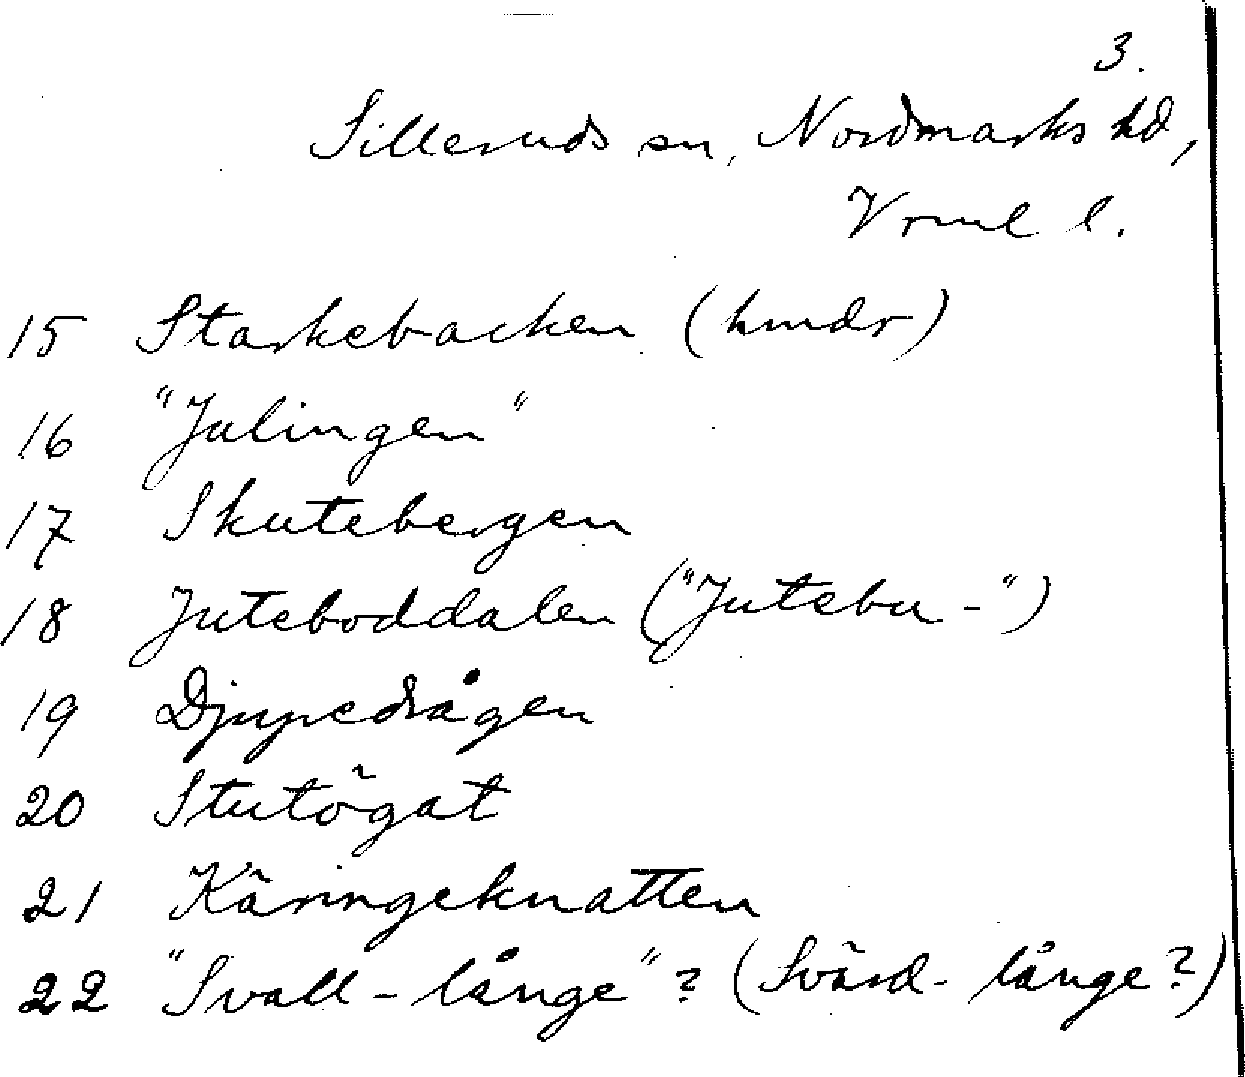 3.
Silleruds sn, Nordmarks hd,
Vrml l.
15 Starkebacken (hmdr)
16 "Julingen"
17 Skutebergen
18 Juteboddalen ("Jutebu-")
19 Djupedrågen
20 Stutögat
21 Käringeknatten
22 "Svall-långe"? (Svärd-långe?)